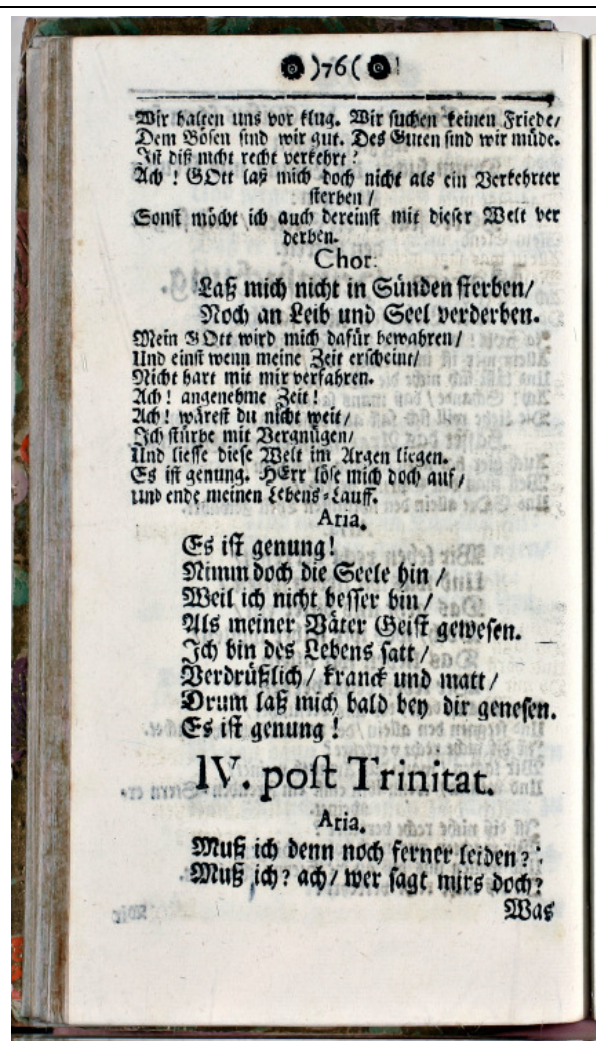 )76(
Wir halten uns vor klug. Wir suchen keinen Friede/
Dem Bösen sind wir gut. Des Guten sind wir müde.
Ist diß nicht recht verkehrt?
Ach! GOtt laß mich doch nicht als ein Verkehrter
sterben /
Sonst möcht ich auch dereinst mit dieser Welt ver
derben.
Chor:
Laß mich nicht in Sünden sterben/
Noch an Leib und Seel verderben.
Mein GOtt wird mich dafür bewahren/
Und einst wenn meine Zeit erscheint/
Nicht hart mit mir verfahren.
Ach! angenehme Zeit!
Ach! wärest du nicht weit/
Ich stürbe mit Vergnügen/
Und liesse diese Welt im Argen liegen.
Es ist genung. HErr löse mich doch auf/
und ende meinen Lebens-Lauff.
Aria.
Es ist genung!
Nimm doch die Seele hin /
Weil ich nicht besser bin /
Als meiner Väter Geist gewesen.
Ich bin des Lebens satt /
Verdrüßlich / kranck und matt /
Drum laß mich bald bey dir genesen.
Es ist genung!
IV. post Trinitat.
Aria.
Muß ich denn noch ferner leiden?
Muß ich? ach/ wer sagt mirs doch?
Was